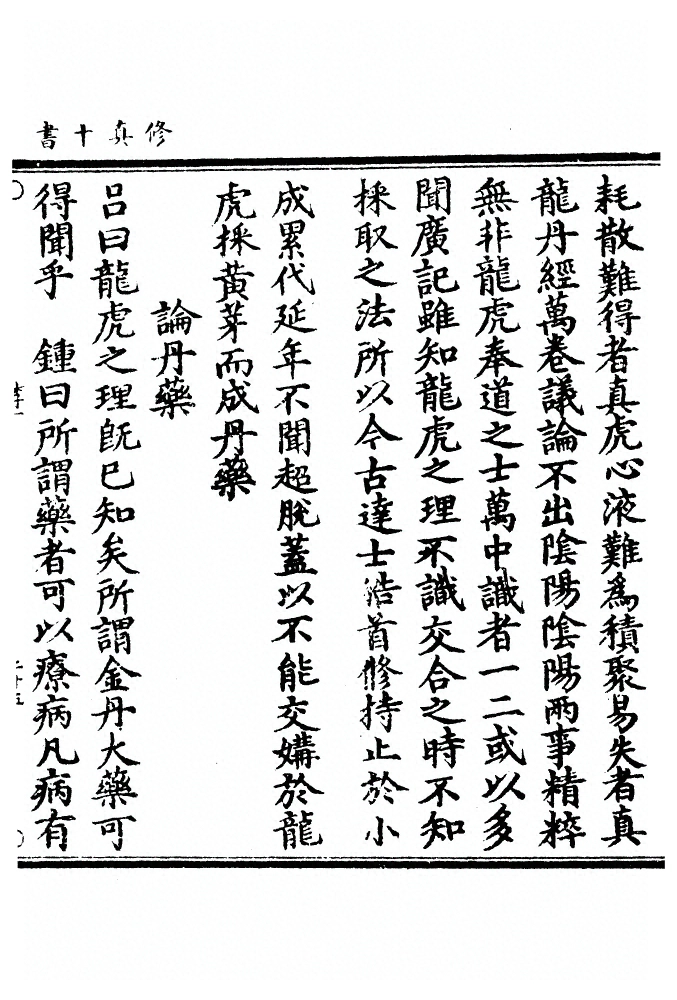 修真十書
耗散難得者真虎心液難為積聚易失者真
龍丹經萬卷議論不出陰陽陰陽兩事精粹
無非龍虎奉道之士萬中識者一二或以多
聞廣記雖知龍虎之理不識交合之時不知
採取之法所以今古達士皓首修持止於小
成累代延年不聞超脫蓋以不能交媾於龍
虎採黄芽而成丹藥
論丹藥
吕曰龍虎之理旣已知矣所謂金丹大藥可
得聞乎　鍾曰所謂藥者可以療病凡病有
二十五